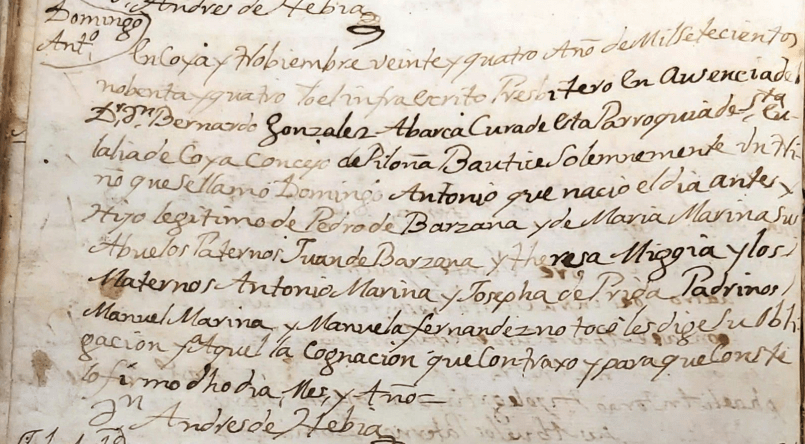 Andres de Hebia
Domingo
Ant.º
En Coya y Nobiembre veinte y quatro Año de Mil Setecientos
nobenta y quatro Yo el infraescrito Presbitero en Ausencia del
D.r D.n Bernardo Gonzalez Abarca Cura de esta Parroquia de S.ta Eu-
lalia de Coya Concejo de Piloña Bautice Solemnemente Un Ni-
ño que se llamó Domingo Antonio que nacio el dia antes y
Hijo legitimo de Pedro de Barzana y de Maria Marina Sus
Abuelos Paternos Juan de Barzana y theresa Miggia y los
Maternos Antonio Marina y Josepha de Prida Padrinos
Manuel Marina y Manuela fernandez no tocó les dige Su Obli-
gacion y Aquel la Cognacion que Contraxo y para que Conste
lo firmo dho dia, Mes, y Año=
D.n Andres de Hebia